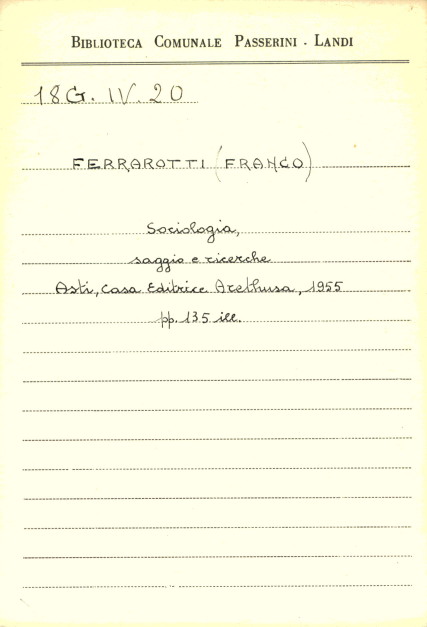 BIBLIOTECA COMUNALE PASSERINI - LANDI
18G. IV. 20
FERRAROTTI (FRANCO)
Sociologia,
saggio e ricerche
Asti, Casa Editrice Arethusa, 1955
pp. 135 ill.